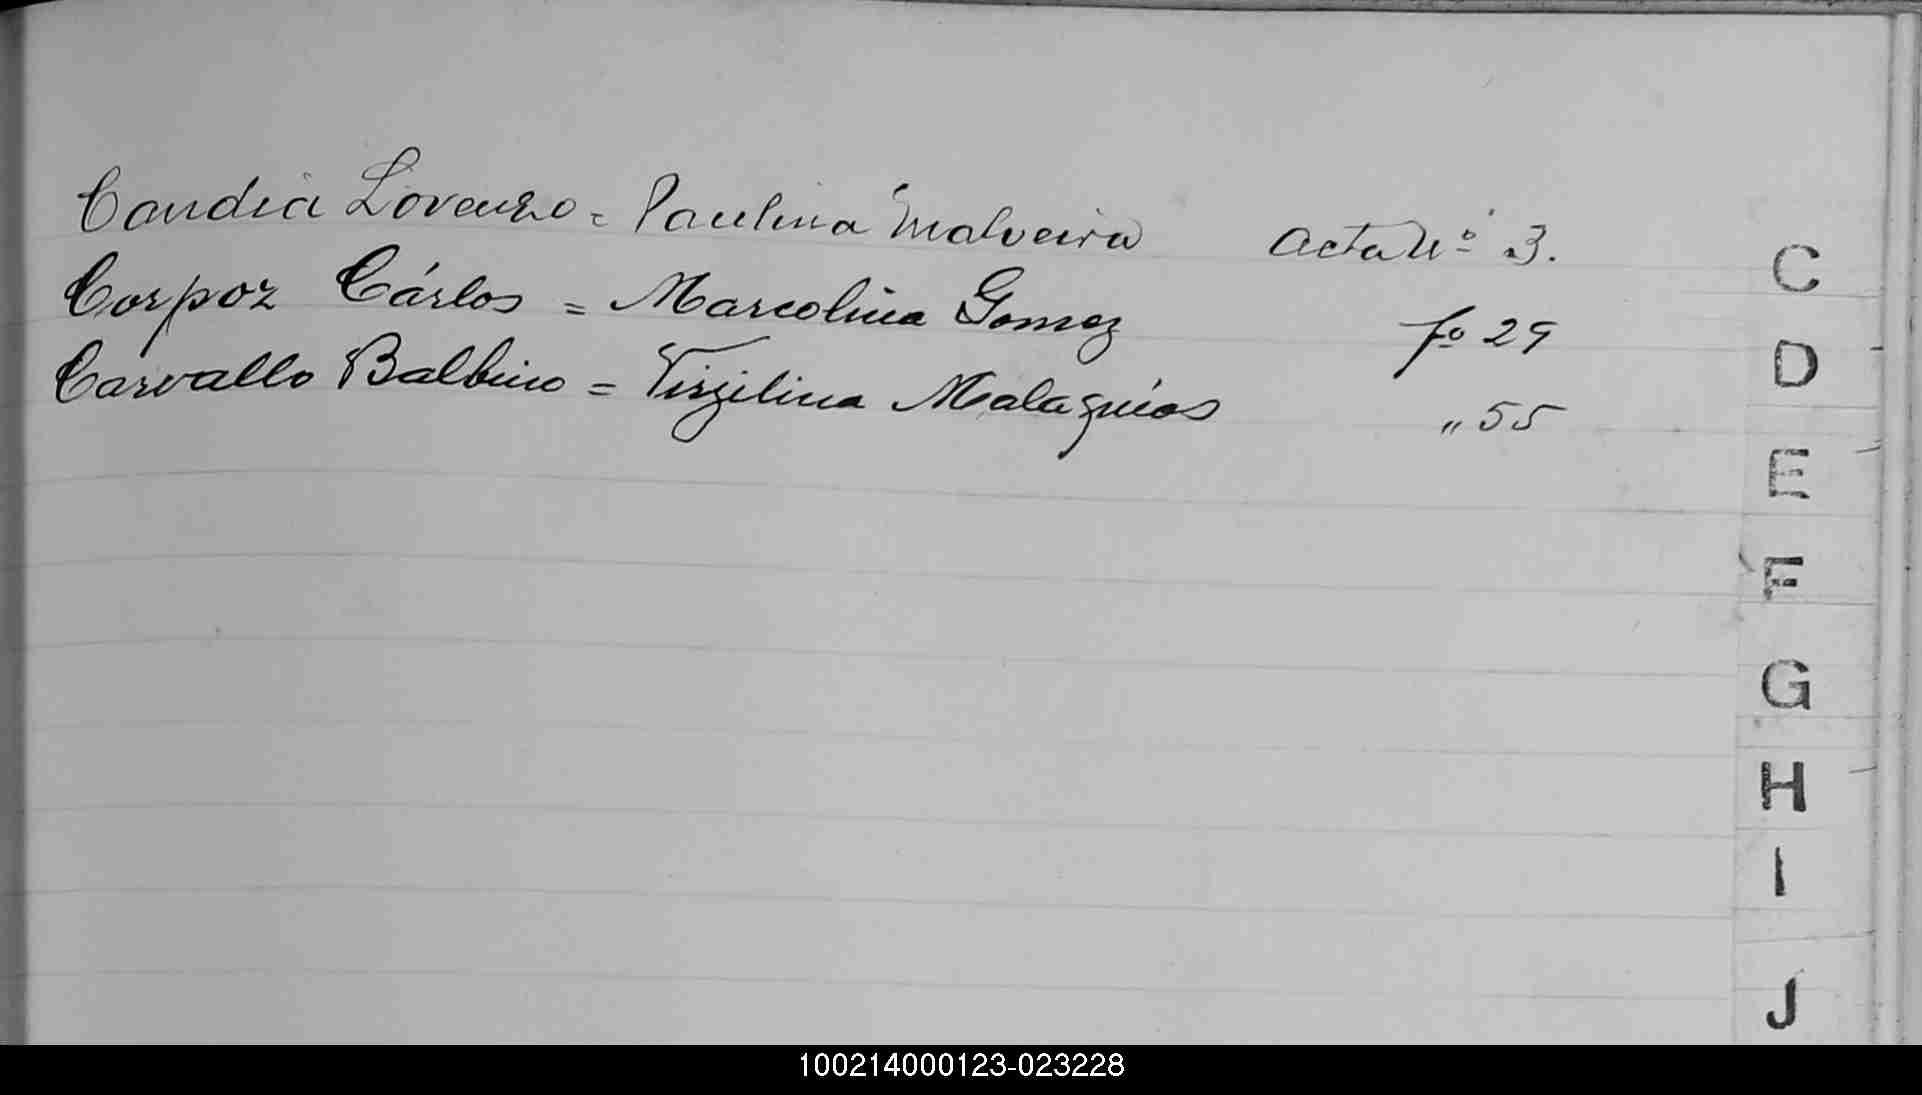 Candia Lorenzo = Paulina Malveira Acta Nº 3.
Corpoz Cárlos = Marcolina Gomez fº 29
Carvallo Balbino = Virgilina Malaquias „ 55
C
D
E
F
G
H
I
J
100214000123-023228